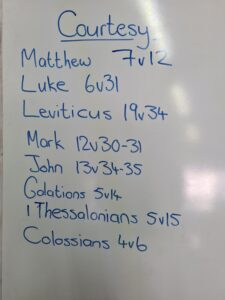 Courtesy
Matthew 7v12
Luke 6v31
Leviticus 19v34
Mark 12v30-31
John 13v34-35
Galations 5v14
1 Thessalonians 5v15
Colossians 4v6